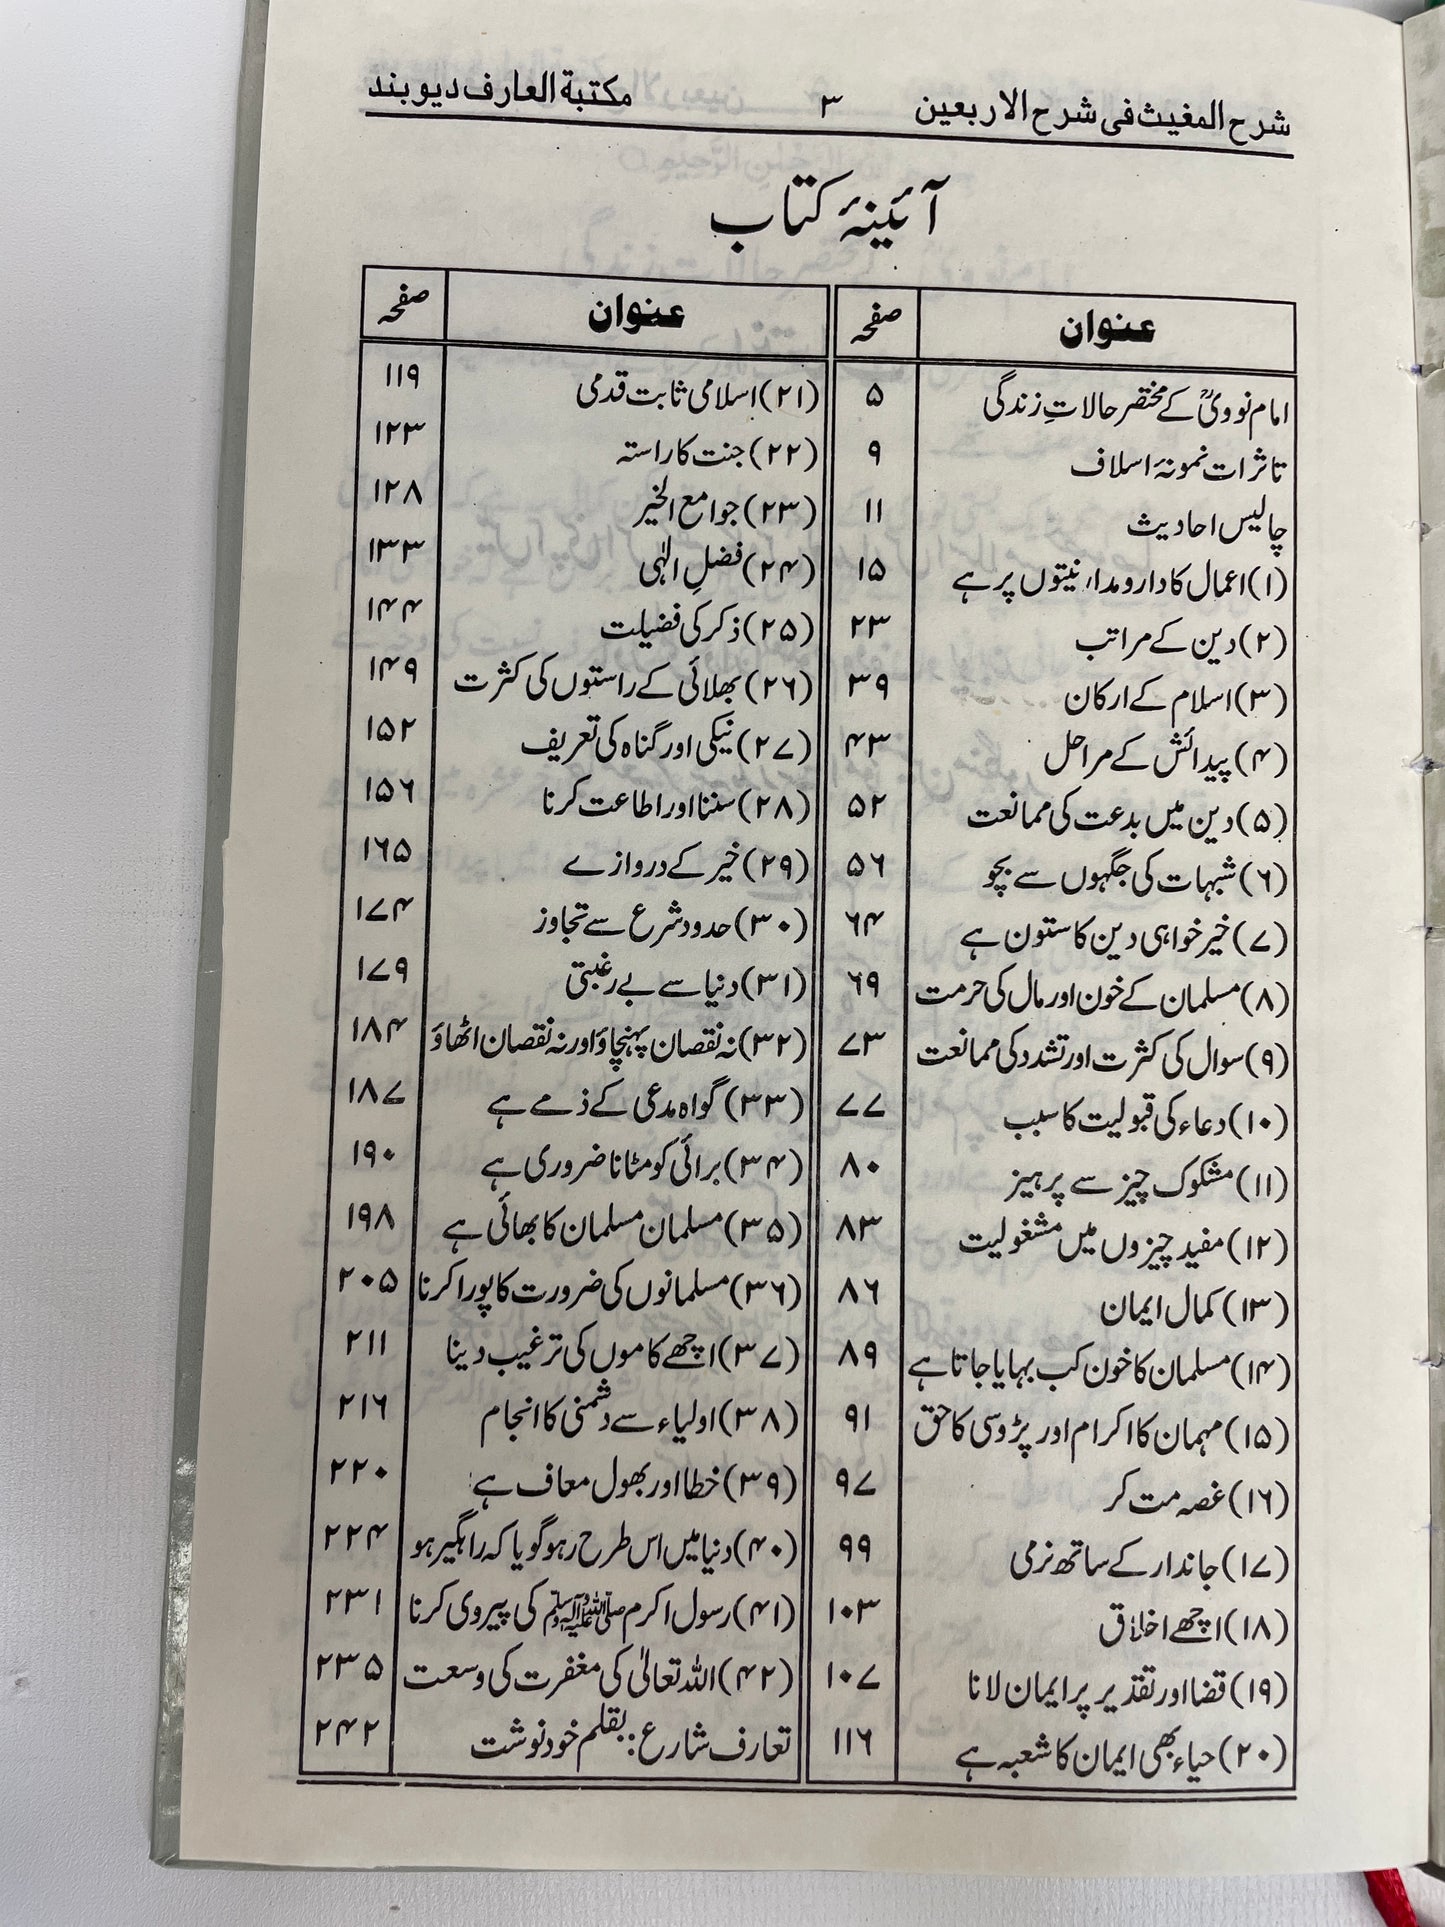 شرح المغیث فی شرح الاربعین ۳ مکتبة العارف دیوبند
آئینۂ کتاب
عنوان صفحہ
امام نوویؒ کے مختصر حالاتِ زندگی ۵
تاثرات نمونۂ اسلاف ۹
چالیس احادیث ۱۱
(۱) اعمال کا دارومدار نیتوں پر ہے ۱۵
(۲) دین کے مراتب ۲۳
(۳) اسلام کے ارکان ۳۹
(۴) پیدائش کے مراحل ۴۳
(۵) دین میں بدعت کی ممانعت ۵۲
(۶) شبہات کی جگہوں سے بچو ۵۶
(۷) خیر خواہی دین کا ستون ہے ۶۴
(۸) مسلمان کے خون اور مال کی حرمت ۶۹
(۹) سوال کی کثرت اور تشدد کی ممانعت ۷۳
(۱۰) دعاء کی قبولیت کا سبب ۷۷
(۱۱) مشکوک چیز سے پرہیز ۸۰
(۱۲) مفید چیزوں میں مشغولیت ۸۳
(۱۳) کمال ایمان ۸۶
(۱۴) مسلمان کا خون کب بہایا جاتا ہے ۸۹
(۱۵) مہمان کا اکرام اور پڑوسی کا حق ۹۱
(۱۶) غصہ مت کر ۹۷
(۱۷) جاندار کے ساتھ نرمی ۹۹
(۱۸) اچھے اخلاق ۱۰۳
(۱۹) قضا اور تقدیر پر ایمان لانا ۱۰۷
(۲۰) حیاء بھی ایمان کا شعبہ ہے ۱۱۶
عنوان صفحہ
(۲۱) اسلامی ثابت قدمی ۱۱۹
(۲۲) جنت کا راستہ ۱۲۳
(۲۳) جوامع الخیر ۱۲۸
(۲۴) فضلِ الٰہی ۱۳۳
(۲۵) ذکر کی فضیلت ۱۴۴
(۲۶) بھلائی کے راستوں کی کثرت ۱۴۹
(۲۷) نیکی اور گناہ کی تعریف ۱۵۲
(۲۸) سننا اور اطاعت کرنا ۱۵۶
(۲۹) خیر کے دروازے ۱۶۵
(۳۰) حدود شرع سے تجاوز ۱۷۴
(۳۱) دنیا سے بے رغبتی ۱۷۹
(۳۲) نہ نقصان پہنچاؤ اور نہ نقصان اٹھاؤ ۱۸۴
(۳۳) گواہ مدعی کے ذمے ہے ۱۸۷
(۳۴) برائی کو مٹانا ضروری ہے ۱۹۰
(۳۵) مسلمان مسلمان کا بھائی ہے ۱۹۸
(۳۶) مسلمانوں کی ضرورت کا پورا کرنا ۲۰۵
(۳۷) اچھے کاموں کی ترغیب دینا ۲۱۱
(۳۸) اولیاء سے دشمنی کا انجام ۲۱۶
(۳۹) خطا اور بھول معاف ہے ۲۲۰
(۴۰) دنیا میں اس طرح رہو گویا کہ راہگیر ہو ۲۲۴
(۴۱) رسول اکرم ﷺ کی پیروی کرنا ۲۳۱
(۴۲) اللہ تعالیٰ کی مغفرت کی وسعت ۲۳۵
تعارف شارع: بقلم خود نوشت ۲۴۲